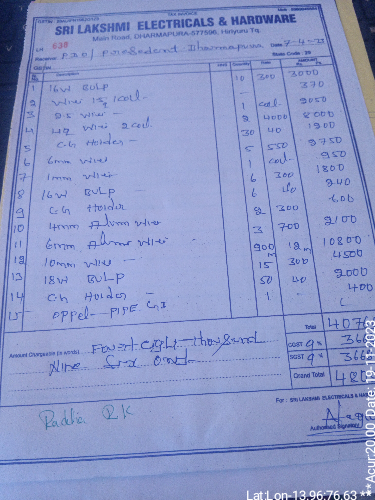 TAX INVOICE
SRI LAKSHMI ELECTRICALS & HARDWARE
Main Road, DHARMAPURA-577596, Hiriyuru Tq.
638
Receiver PDO/ President Dharmapura Date 7-4-23
State Code: 29
Description AMOUNT
1 16W BULP 10 300 3000
2 wire 1 coil - 370
3 2.5 wire 1 coil 2050
4 4q wire 2 coil 2 4000 8000
5 C.H Holder 30 40 1200
6 6mm wire 5 550 2750
7 1mm wire 1 coil 950
8 16W BULP 6 300 1800
9 C.H Holder 6 40 240
10 4mm Alum wire 2 300 600
11 6mm Alum wire 3 700 2100
12 10mm wire 900 12 10800
13 18W BULP 15 300 4500
14 C.H Holder 50 40 2000
15 PIPE 1 400
Total 407
Amount Chargeable (in words) Forty eight thousand CGST 9% 366
Nine SGST 9% 366
Grand Total 480
For : SRI LAKSHMI ELECTRICALS & HA
Radha R.K
Authorised Signatory
Lat:Lon-13.96:76.63 ***Acur:20.00 Date:19-11-2023